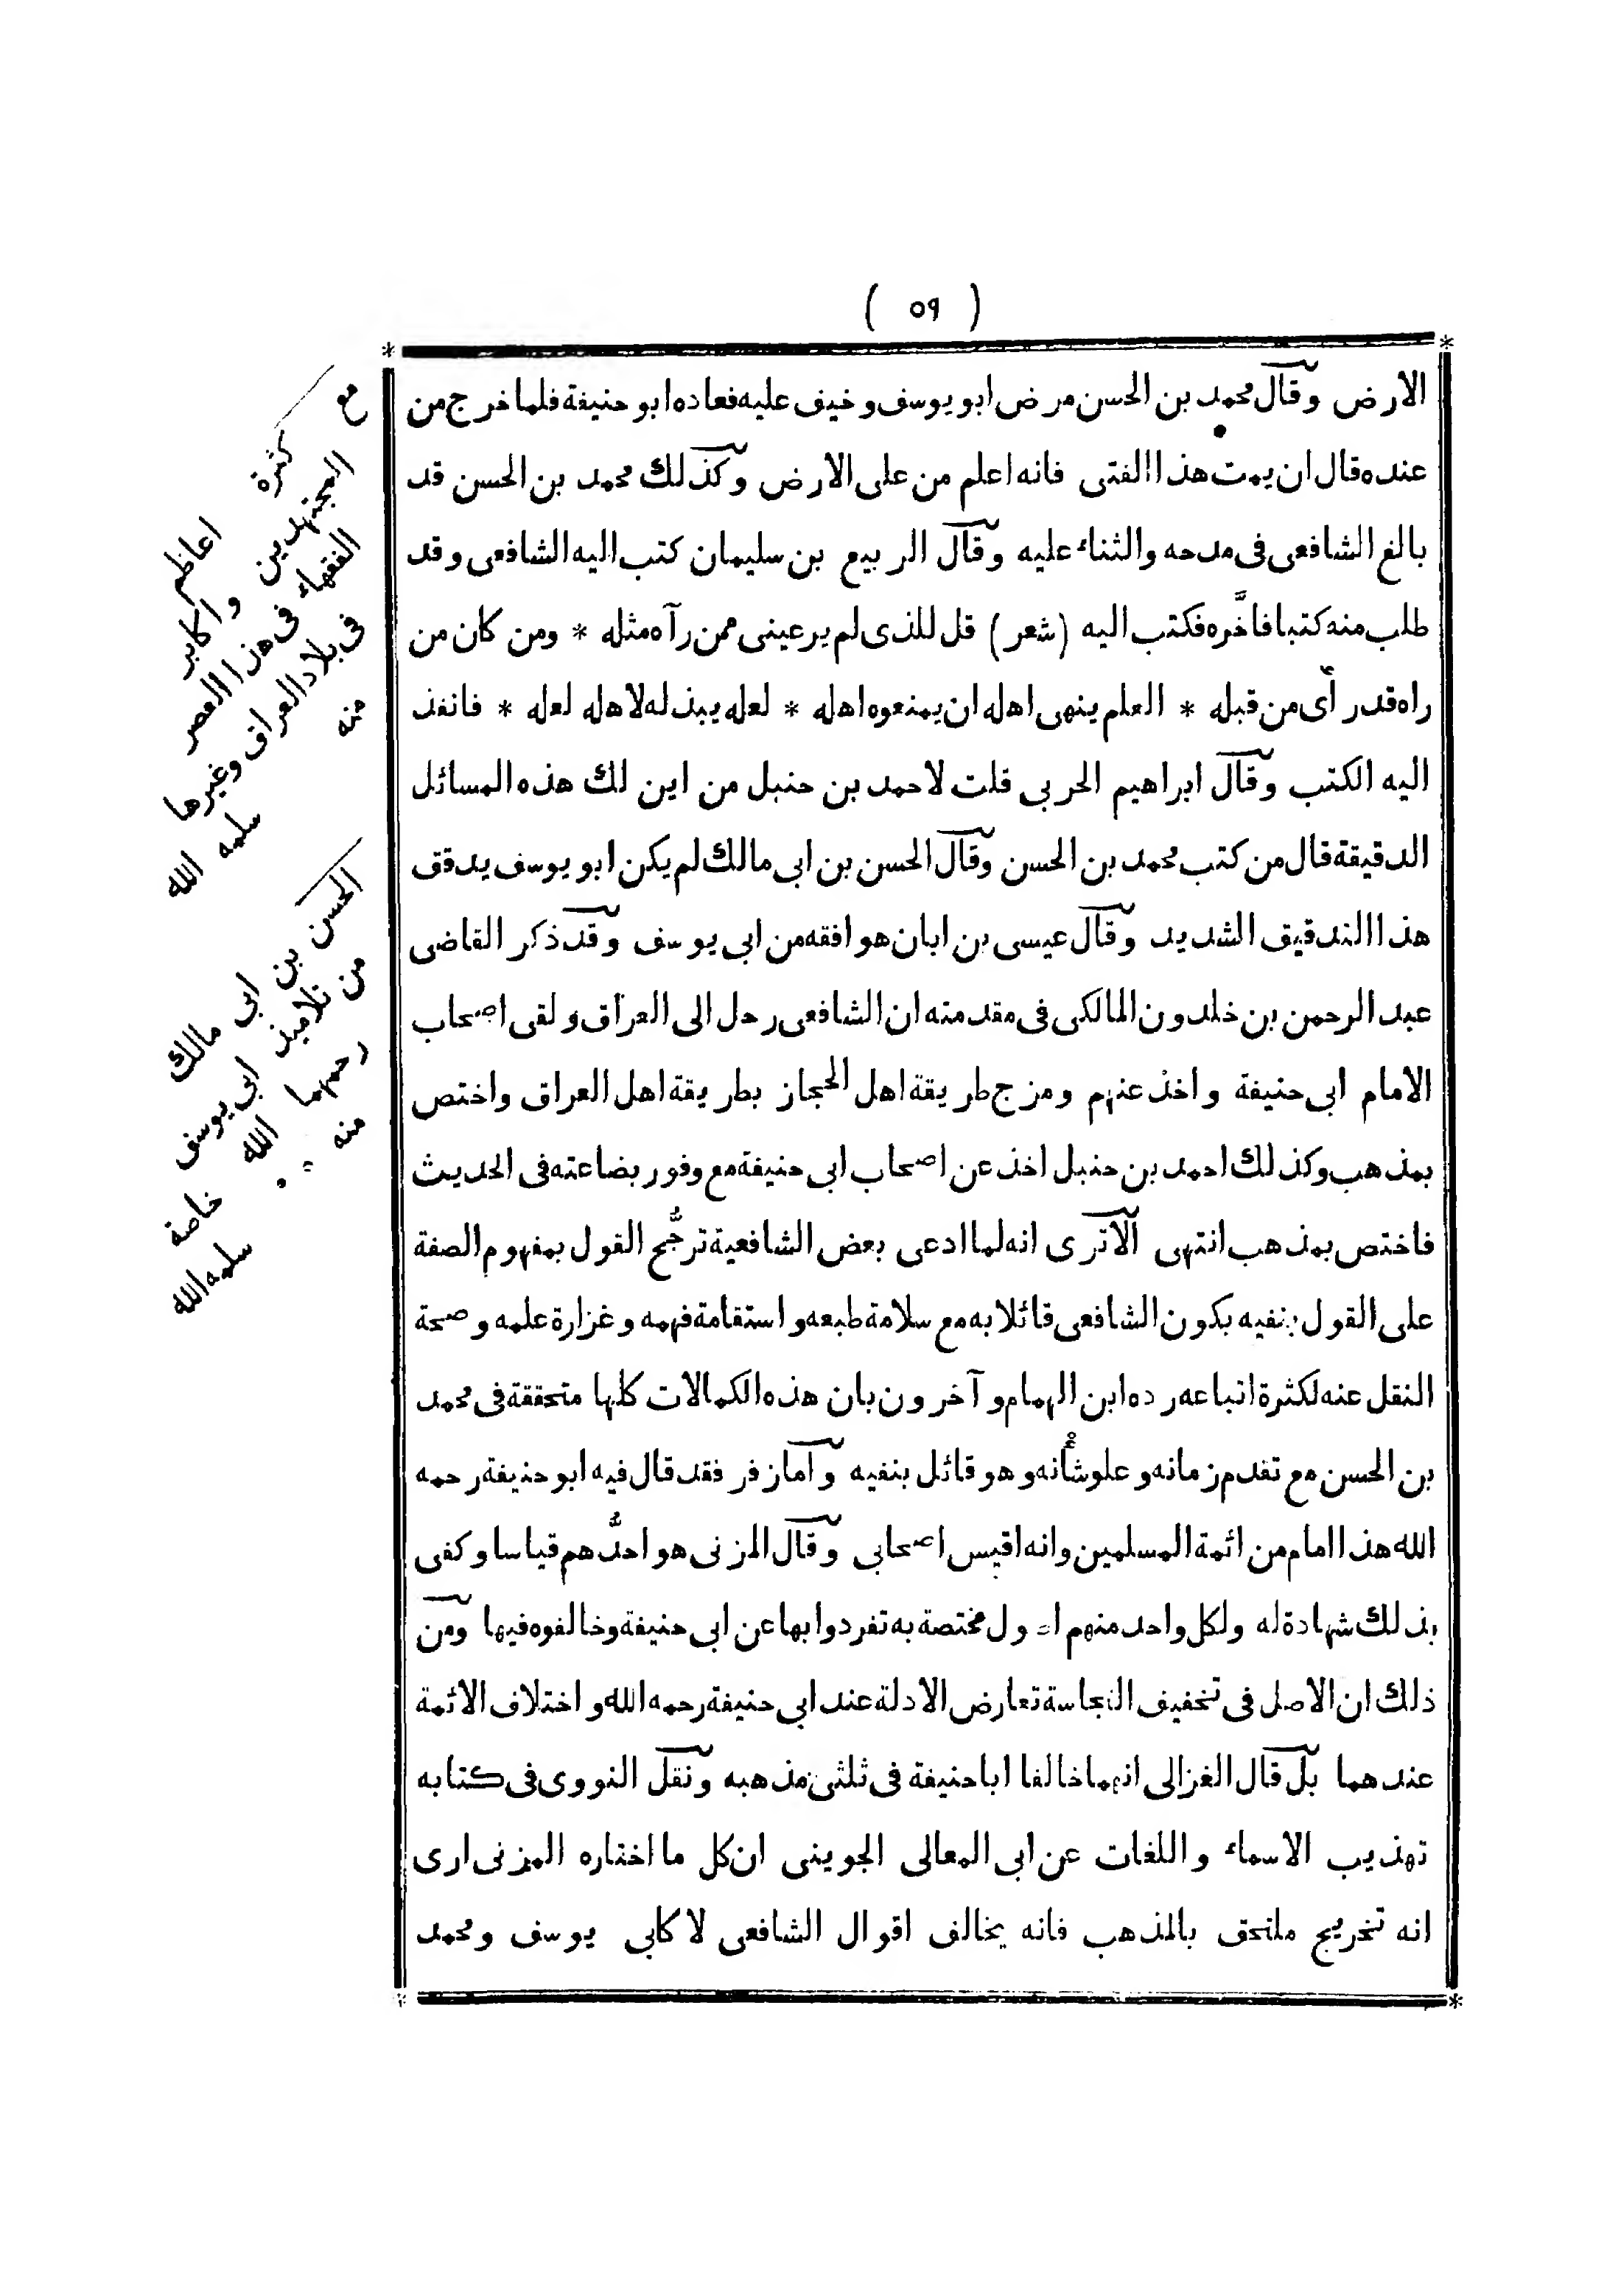 ( ٥٩ )
الارض وقال محمد بن الحسن مرض ابو يوسف وخيف عليه فعاده ابو حنيفة فلما خرج من
عنده قال ان يمت هذا الفتى فانه اعلم من على الارض وكذلك محمد بن الحسن قد
بالغ الشافعى فى مدحه والثناء عليه وقال الربيع بن سليمان كتب اليه الشافعى وقد
طلب منه كتبا فاخَّره فكتب اليه (شعر) قل للذى لم ير عينى ممن رآه مثله * ومن كان من
راه قد رأى من قبله * العلم ينهى اهله ان يمنعوه اهله * لعله يبذله لاهله لعله * فانفذ
اليه الكتب وقال ابراهيم الحربى قلت لاحمد بن حنبل من اين لك هذه المسائل
الدقيقة قال من كتب محمد بن الحسن وقال الحسن بن ابى مالك لم يكن ابو يوسف يدقق
هذا التدقيق الشديد وقال عيسى بن ابان هو افقه من ابى يوسف وقد ذكر القاضى
عبد الرحمن بن خلدون المالكى فى مقدمته ان الشافعى رحل الى العراق ولقى اصحاب
الامام ابى حنيفة واخذ عنهم ومزج طريقة اهل الحجاز بطريقة اهل العراق واختص
بمذهب وكذلك احمد بن حنبل اخذ عن اصحاب ابى حنيفة مع وفور بضاعته فى الحديث
فاختص بمذهب انتهى الاترى انه لما ادعى بعض الشافعية ترجُّح القول بمفهوم الصفة
على القول بنفيه بكون الشافعى قائلا به مع سلامة طبعه واستقامة فهمه وغزارة علمه وصحة
النقل عنه لكثرة اتباعه رده ابن الهمام وآخرون بان هذه الكمالات كلها متحققة فى محمد
بن الحسن مع تقدم زمانه وعلو شأنه وهو قائل بنفيه واما زفر فقد قال فيه ابو حنيفة رحمه
الله هذا امام من ائمة المسلمين وانه اقيس اصحابى وقال المزنى هو احدُّهم قياسا وكفى
بذلك شهادة له ولكل واحد منهم اصول مختصة به تفردوا بها عن ابى حنيفة وخالفوه فيها ومن
ذلك ان الاصل فى تخفيف النجاسة تعارض الادلة عند ابى حنيفة رحمه الله واختلاف الائمة
عندهما بل قال الغزالى انهما خالفا ابا حنيفة فى ثلثى مذهبه ونقل النووى فى كتابه
تهذيب الاسماء واللغات عن ابى المعالى الجوينى ان كل ما اختاره المزنى ارى
انه تخريج ملتحق بالمذهب فانه يخالف اقوال الشافعى لا كابى يوسف ومحمد
مع كثرة اعاظم
المجتهدين واكابر
الفقهاء فى هذا العصر
فى بلاد العراق وغيرها
منه سلمه الله
الحسن بن ابى مالك
من تلاميذ ابى يوسف
رحمهما الله خاصة
منه سلمه الله